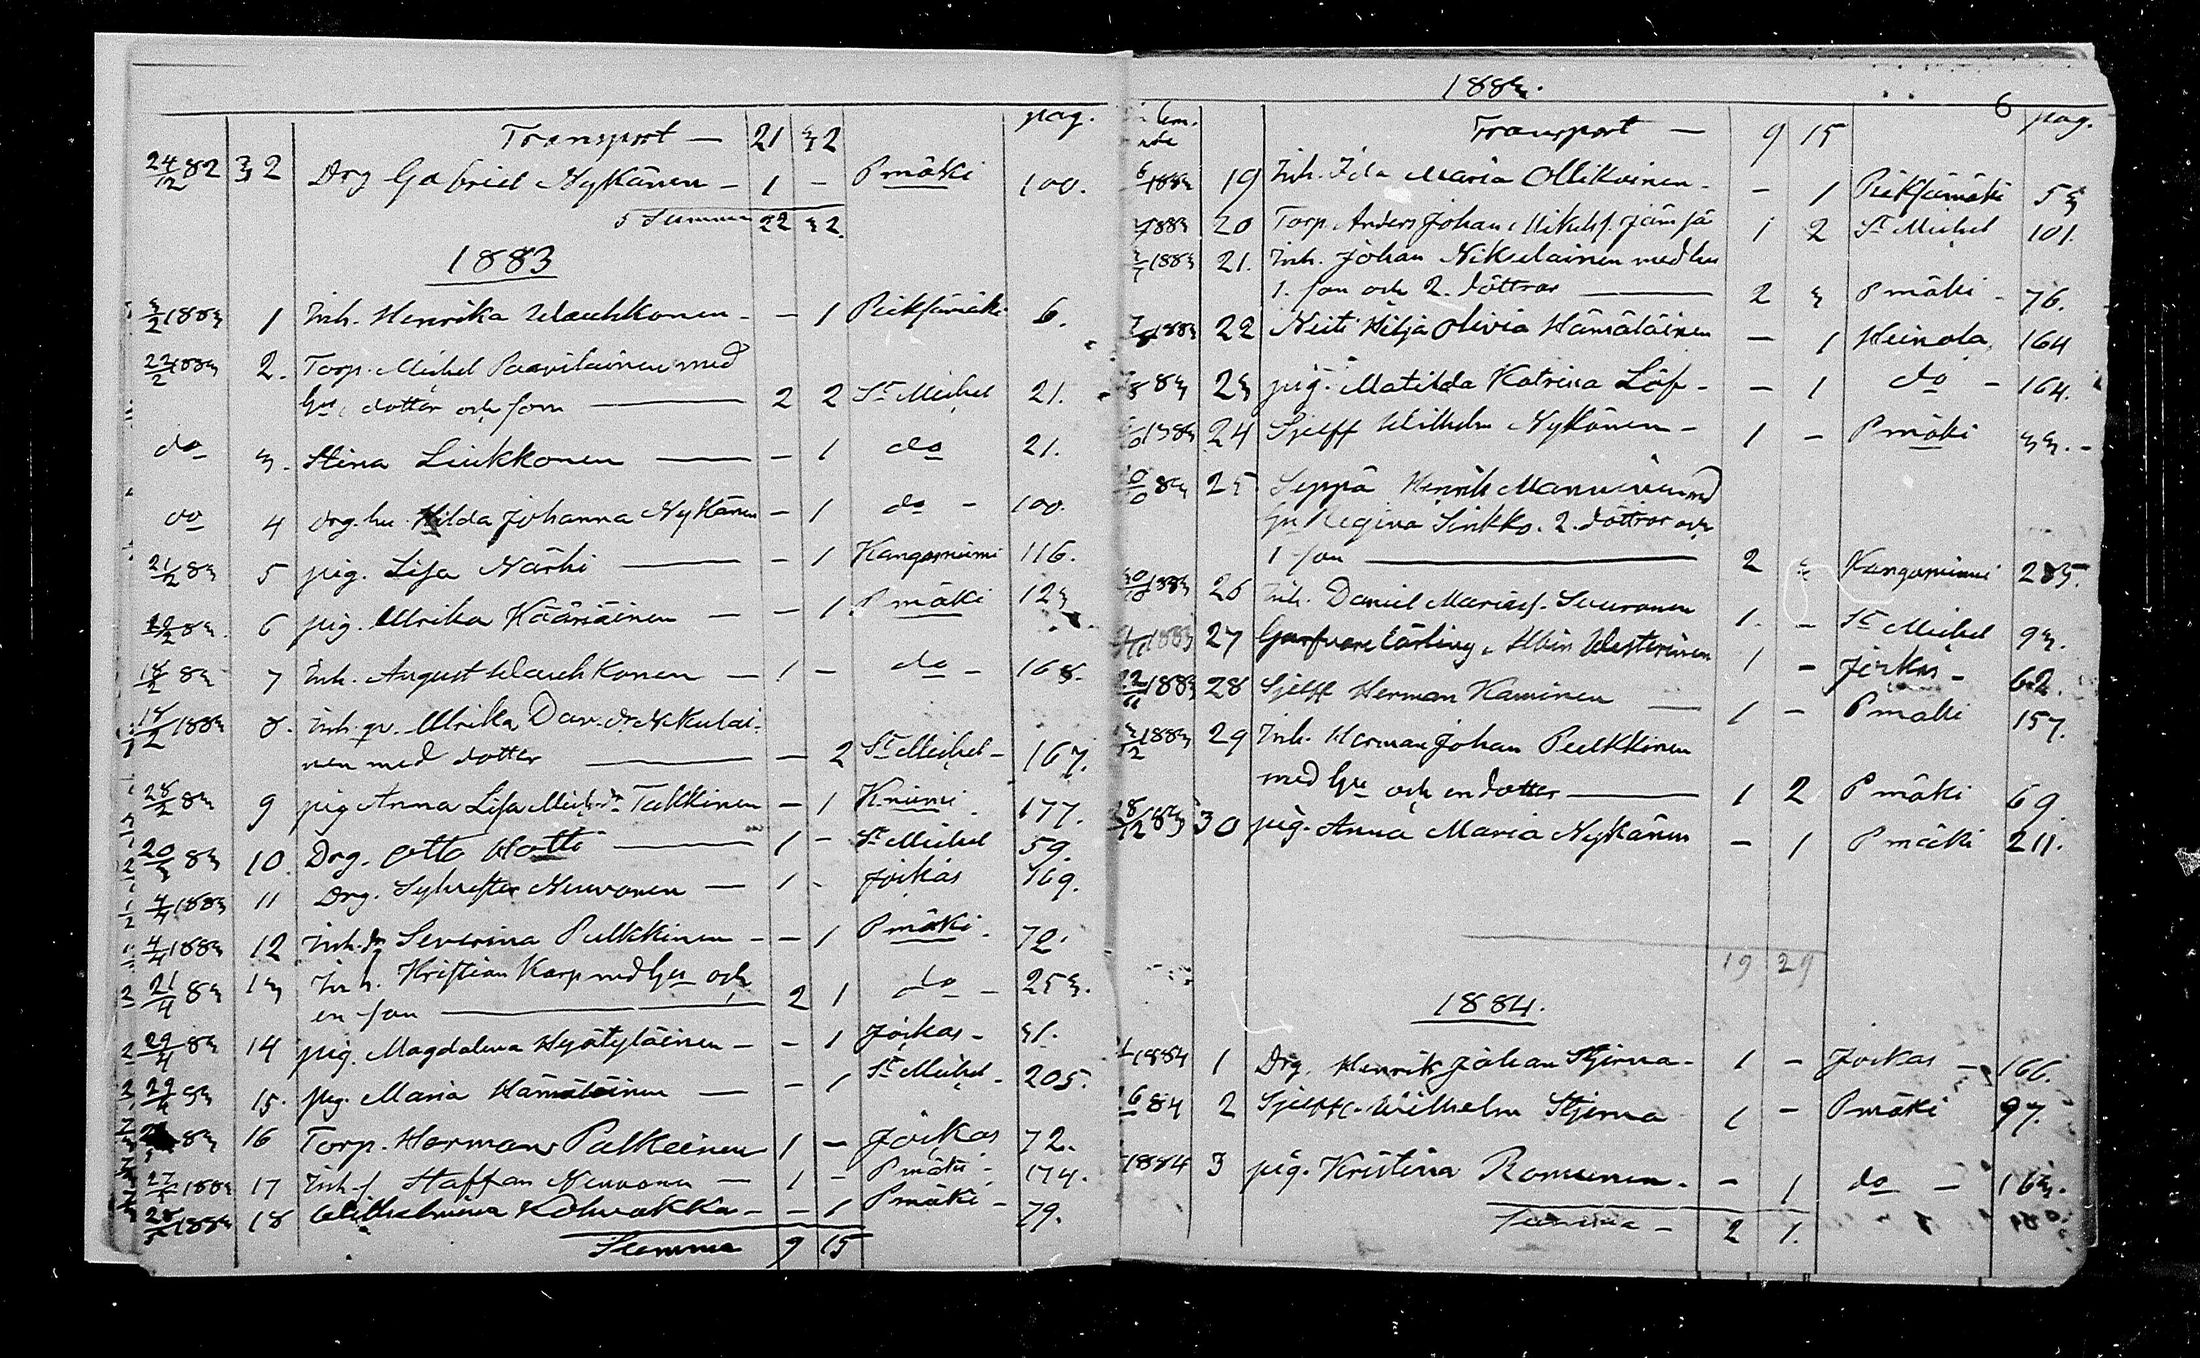 pag.
Transport — 21 32
24/12 82 32 Drg Gabriel Nykänen - 1 - Pmäki 100.
Summa 22 32.
1883
3/2 1883 1 Inh. Henrika Wauhkonen - - 1 Pieksämäki 6.
22/2 1883 2. Torp. Michel Paavilainen med
hu, dotter och son — 2 2 St Michel 21.
do 3. Stina Liukkonen — - 1 do 21.
do 4 Drg. hu. Hilda Johanna Nykänen - 1 do - 100.
21/2 83 5 pig. Lisa Närhi — - 1 Kangasniemi 116.
83 6 pig. Ulrika Kääriäinen — - 1 Pmäki 123
18/2 83 7 Inh. August Wauhkonen — 1 - do - 168.
18/2 1883 8. Inh. Ulrika Dav. dr Nikulai-
nen med dotter — - 2 St Michel - 167.
28/2 83 9 pig Anna Lisa Mich. dr Takkinen - 1 Kniemi 177.
20/3 83 10. Drg. Otto Hotti — 1 - St Michel 59.
4/4 1883 11 Drg. Sylvester Neuvonen — 1 - Joikas 169.
4/4 1883 12 Inh. dr Severina Pulkkinen - - 1 Pmäki. 72.
21/4 83 13 Inh. Kristian Karp med hu och
en son — 2 1 do - 253.
29/4 83 14 pig. Magdalena Hyötyläinen - - 1 Joikas - 31.
83 15. pig. Maria Hämäläinen — - 1 St Michel - 205.
83 16 Torp. Herman Pulkkinen 1 - Joikas 72.
1883 17 Inh. s. Staffan Neuvonen — 1 - Pmäki - 174.
1883 18 Wilhelmina Kohvakka - - 1 Pmäki - 79.
Summa 9 15
1883.
6
pag.
Transport — 9 15
1883 19 Inh. Ida Maria Ollikainen - - 1 Pieksämäki 53
1883 20 Torp. Anders Johan Mikels. Jämsä 1 2 St Michel 101.
1883 21. Inh. Johan Nikulainen med hu
1. son och 2. döttrar — 2 3 Pmäki - 76.
1883 22 Neiti Hilja Olivia Hämäläinen - 1 Heinola 164
83 23 pig. Matilda Katrina Löf - - 1 do - 164.
1883 24 Sjelff Wilhelm Nykänen - 1 - Pmäki 33. -
83 25 Seppä Henrik Manninen med
hu Regina Sinkko. 2. döttrar och
1 son — 2 3 Kangasniemi 285.
1883 26 Inh. Daniel Mariess. Suuronen 1. - St Michel 93.
1883 27 Garfvare lärling. Albin Westerinen 1 - Joikas - 62.
22/11 1883 28 Sjelff Herman Kaminen — 1 - Pmäki 157.
1883 29 Inh. Herman Johan Pulkkinen
med hu och en dotter — 1 2 Pmäki 69.
28/12 83 30 pig. Anna Maria Nykänen - 1 Pmäki 211.
19 29
1884.
1884 1 Drg. Henrik Johan Stjerna - 1 - Joikas - 166.
84 2 Sjelff. Wilhelm Stjerna 1 - Pmäki 97.
1884 3 pig. Kristina Romunen. - 1 do - 163.
Summa - 2 1.